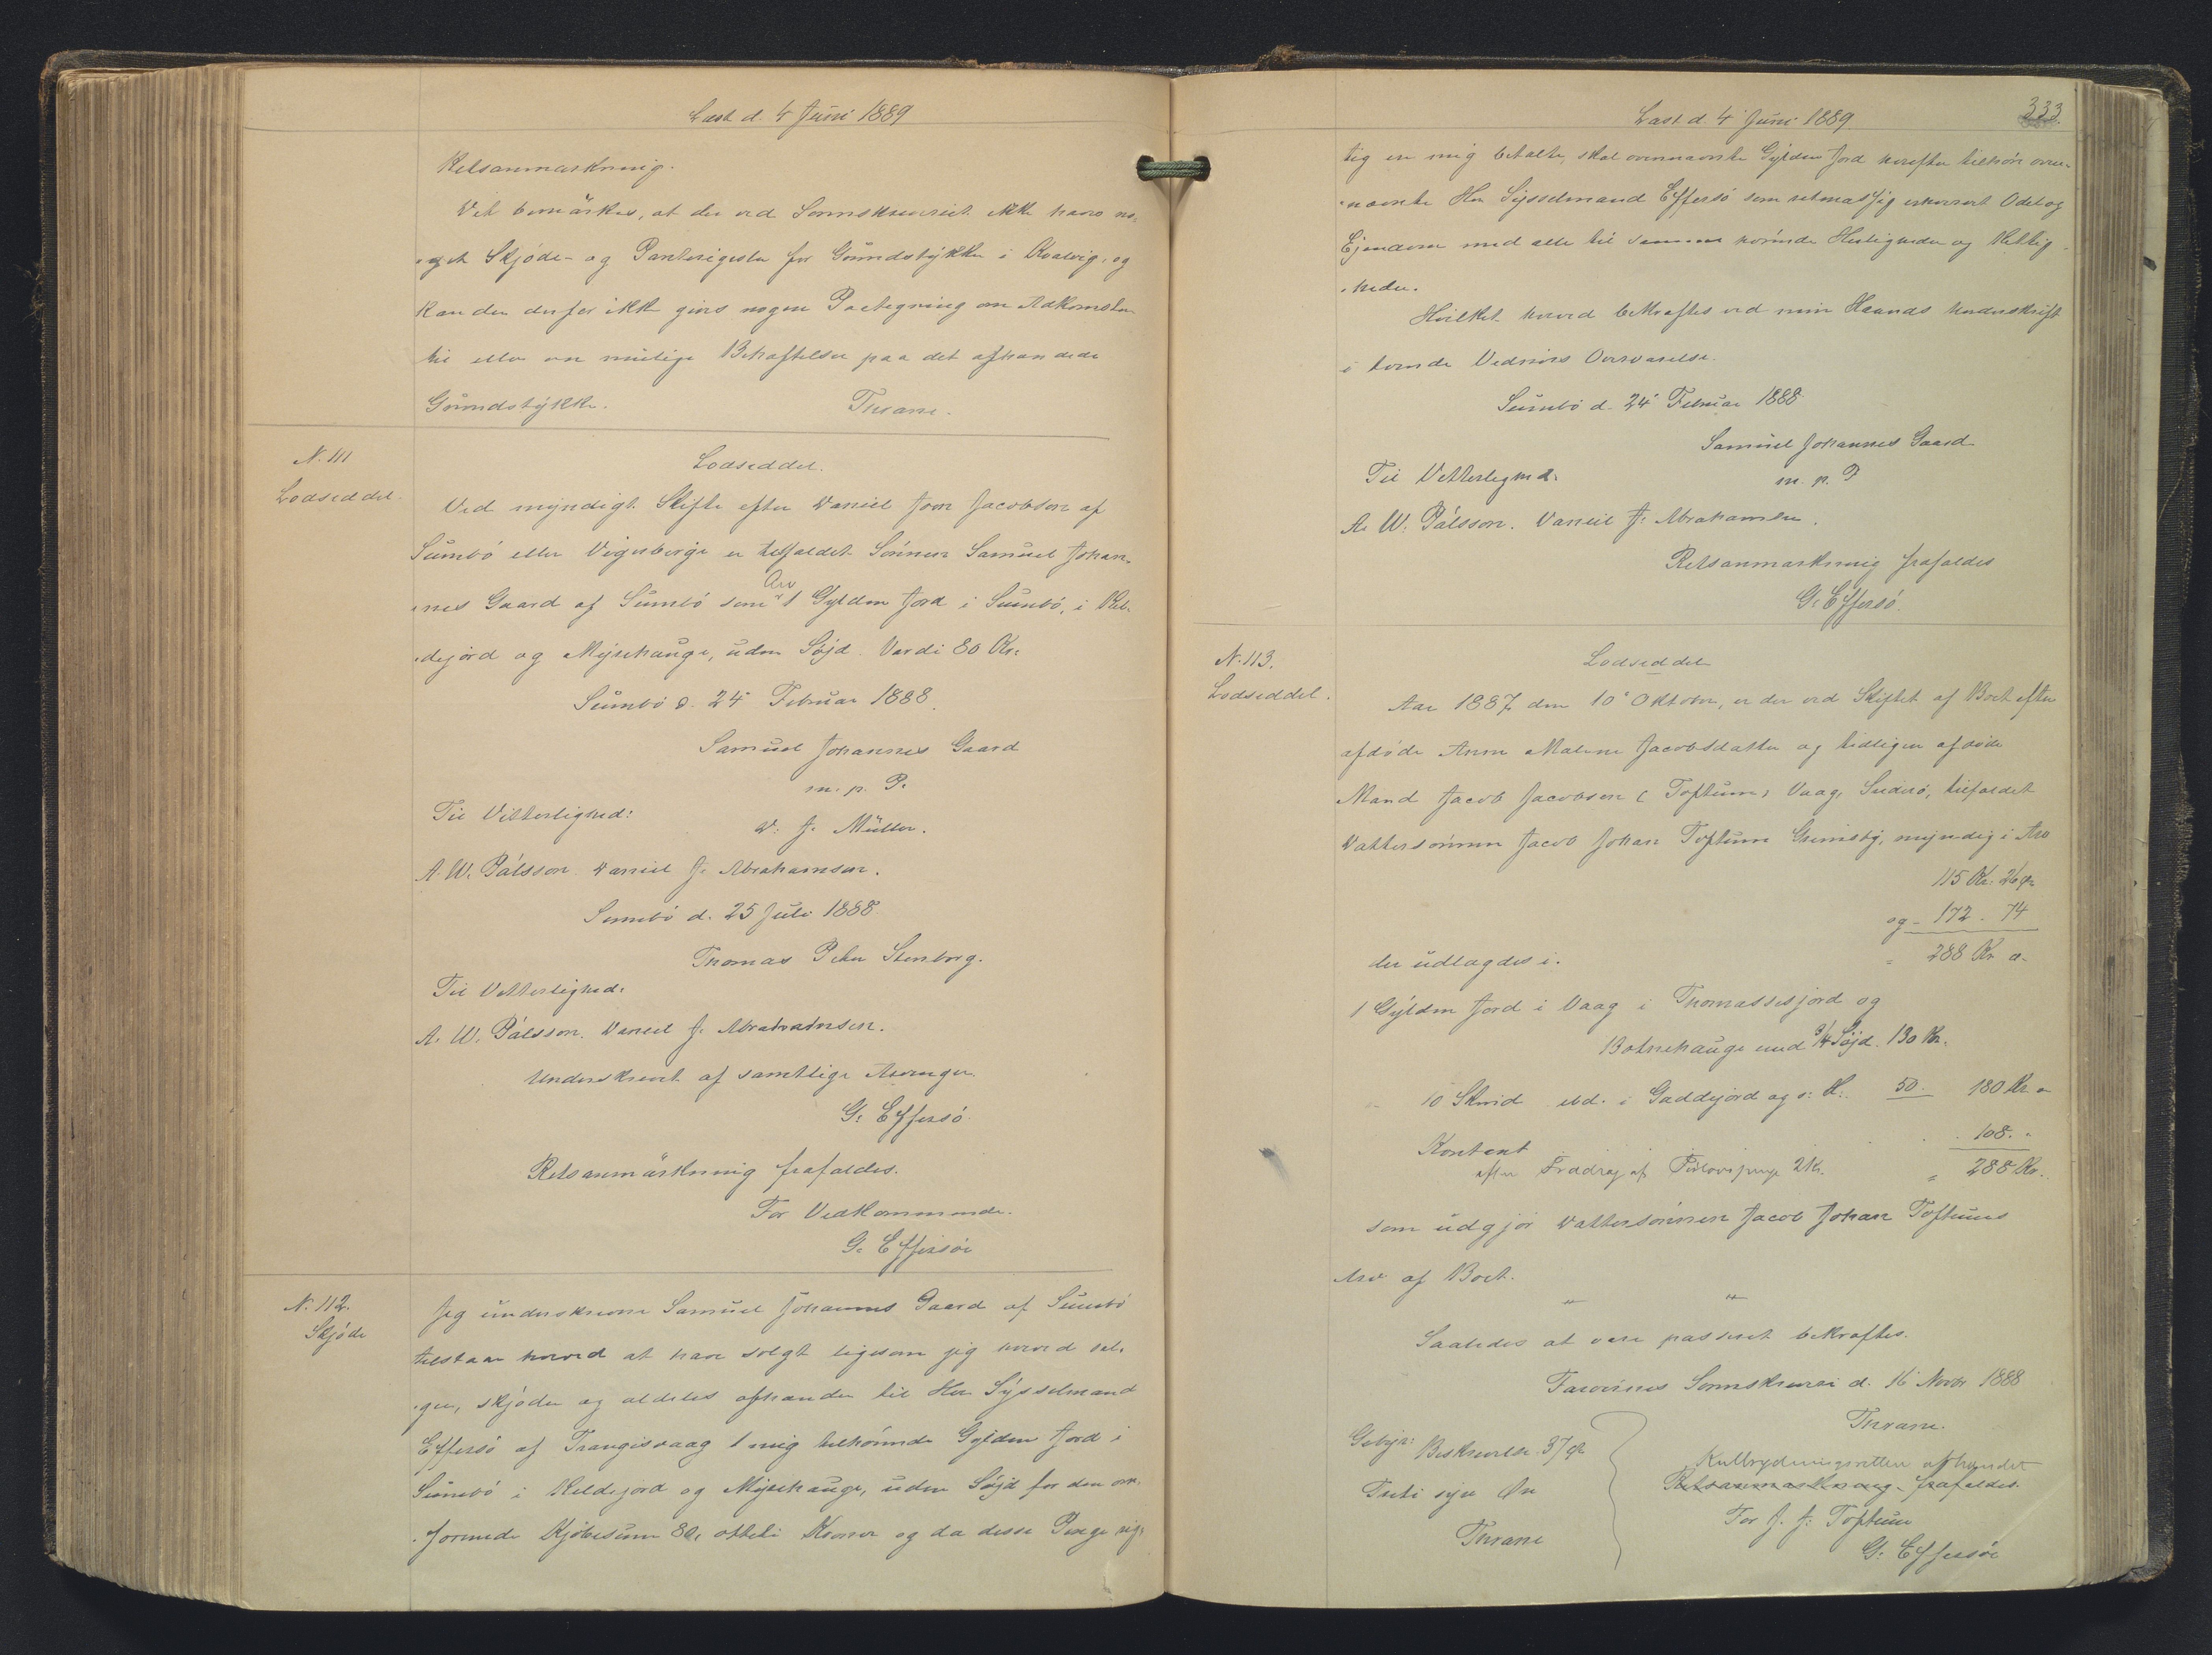 Læst d. 4 Juni 1889
Retsanmærkning.
Det bemärkes, at der ved Sorenskriveriet ikke haves no-
get Skjöde- og Panteregister for Grundstykker i Kvalvig, og
kan der derfor ikke gives nogen Paategning om Adkomsten
til eller om mulige Behæftelser paa det afhændede
Grundstykke. Thrane.
N. 111
Lodseddel.
Lodseddel.
Ved myndigt Skifte efter Daniel Joen Jacobsen af
Sumbö eller Vigerberge er tilfaldet Sönnen Samuel Johan-
nes Gaard af Sumbö som Arv 1 Gylden Jord i Sumbö, i Kel-
dejord og Myrehauge, uden Söjd. Værdi 80 Kr.
Sumbö d. 24 Februar 1888.
Samuel Johannes Gaard
m. p. P.
Til Vitterlighed:
D. J. Müller.
A. W. Pálsson. Daniel J. Abrahamsen.
Sumbö d. 25 Juli 1888
Thomas Peter Stenborg.
Til Vitterlighed:
A. W. Pálsson. Daniel J. Abrahamsen.
Underskrevet af samtlige Arvinger.
G. Effersö
Retsanmärkning frafaldes.
For Vedkommende.
G. Effersöe
N. 112.
Skjöde
Jeg underskrevne Samuel Johannes Gaard af Sumbö
tilstaar herved at have solgt ligesom jeg herved sæl-
ger, skjöder og aldeles afhænder til Herr Sysselmand
Effersö af Trangisvaag 1 mig tilhörende Gylden Jord i
Sumbö i Keldejord og Myrehauge, uden Söjd for den om-
formede Kjöbesum 80, otteti Kroner og da disse Penge rig-
Læst d. 4 Juni 1889
333.
tig er mig betalte, skal ovennævnte Gylden Jord herefter tilhöre oven-
nævnte Herr Sysselmand Effersö som retmæssig erhvervet Odel og
Ejendom med alle til samme hörende Herligheder og Rettig-
heder.
Hvilket herved bekræftes ved min Haands Underskrift
i tvende Vidners Overværelse.
Sumbö d. 24 Februar 1888
Samuel Johannes Gaard
Til Vitterlighed. m. p. P
A. W. Pálsson. Daniel J. Abrahamsen.
Retsanmærkning frafaldes
G. Effersö.
N. 113.
Lodseddel.
Lodseddel
Aar 1887 den 10 Oktober, er der ved Skiftet af Boet efter
afdöde Anne Malene Jacobsdatter og tidligere afdöde
Mand Jacob Jacobsen (Toftum) Vaag, Suderö, tilfaldet
Dattersönnen Jacob Johan Toftum Grimsby, myndig i Arv
115 Kr. 26 Ør
og - 172 - 74
= 288 Kr. "
der udlagdes i.
1 Gylden Jord i Vaag i Thomassesjord og
Botnehauge med 3/4 Söjd. 130 Kr.
10 Skind ibd. i Gaddejord og s. H. 50. 180 Kr. "
Kontant 108. "
efter Fradrag af 2 Kr. = 288 Kr.
som udgjör Dattersönnen Jacob Johan Toftums
Arv af Boet.
" "
Saaledes at være passeret bekræftes.
Færöernes Sorenskriveri d. 16 Novbr 1888
Thrane.
Gebyr: Beskrivelse 37 Ør
Treti syv Ør
Thrane
Kulbrydningsretten afhændet
Retsanmærkning frafaldes.
For J. J. Toftum
G. Effersöe